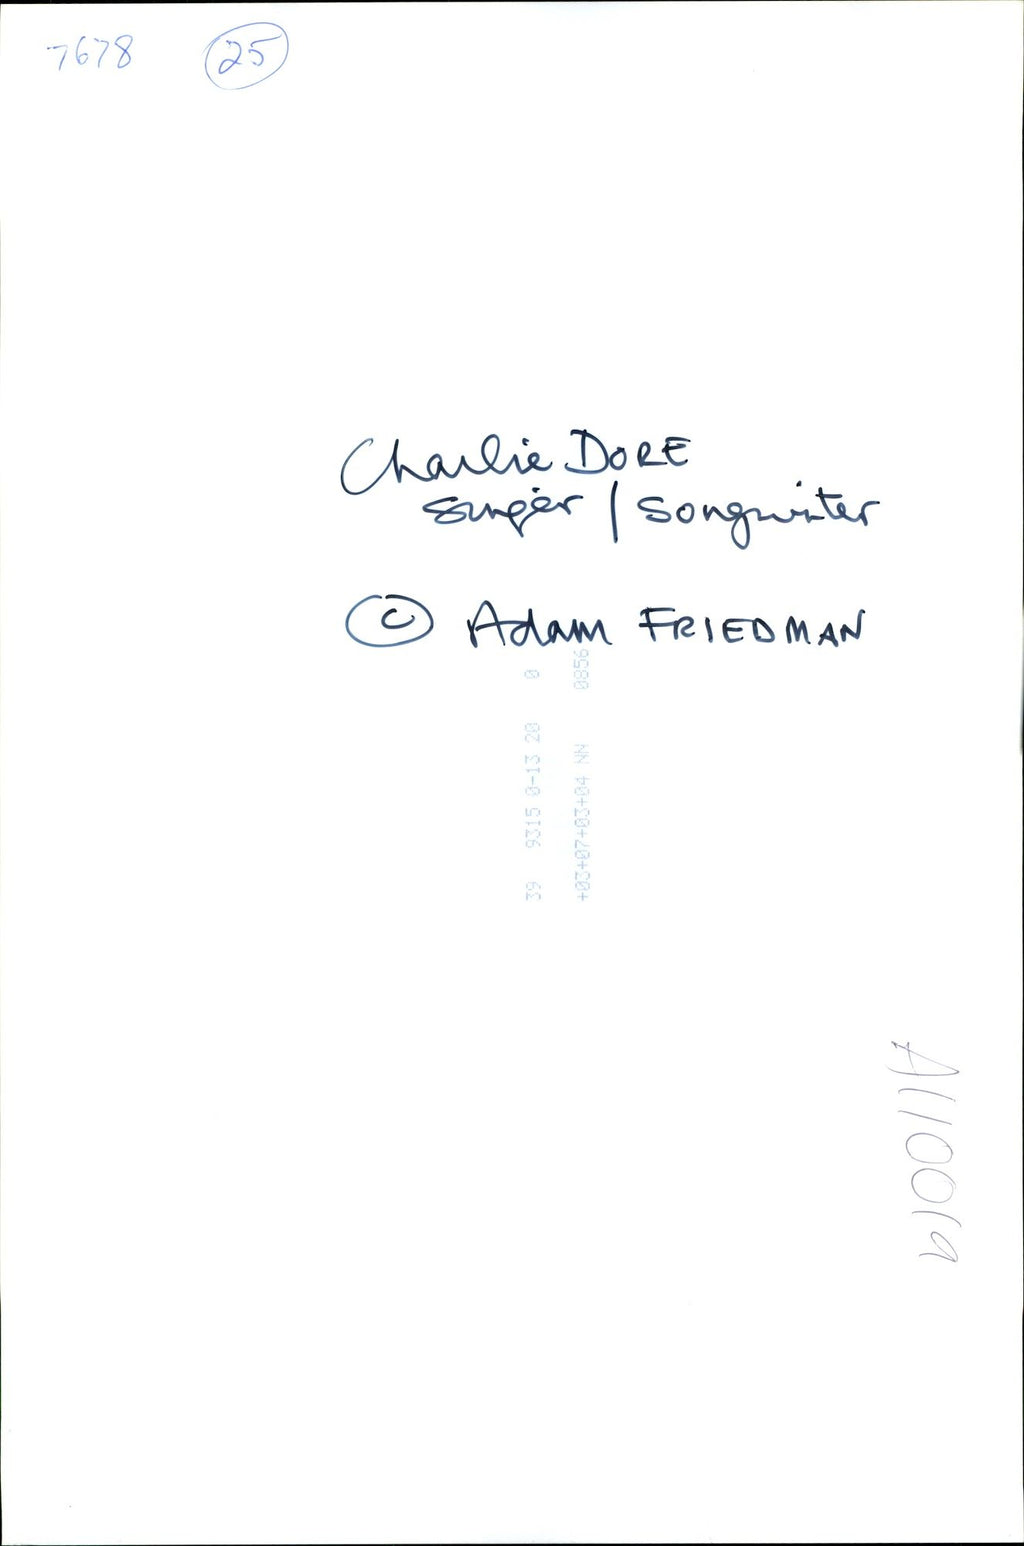 7678 25
Charlie DORE
singer / songwriter
© Adam FRIEDMAN
39 9315 0-13 20 0
+03+07+03+04 NN 0856
A110019